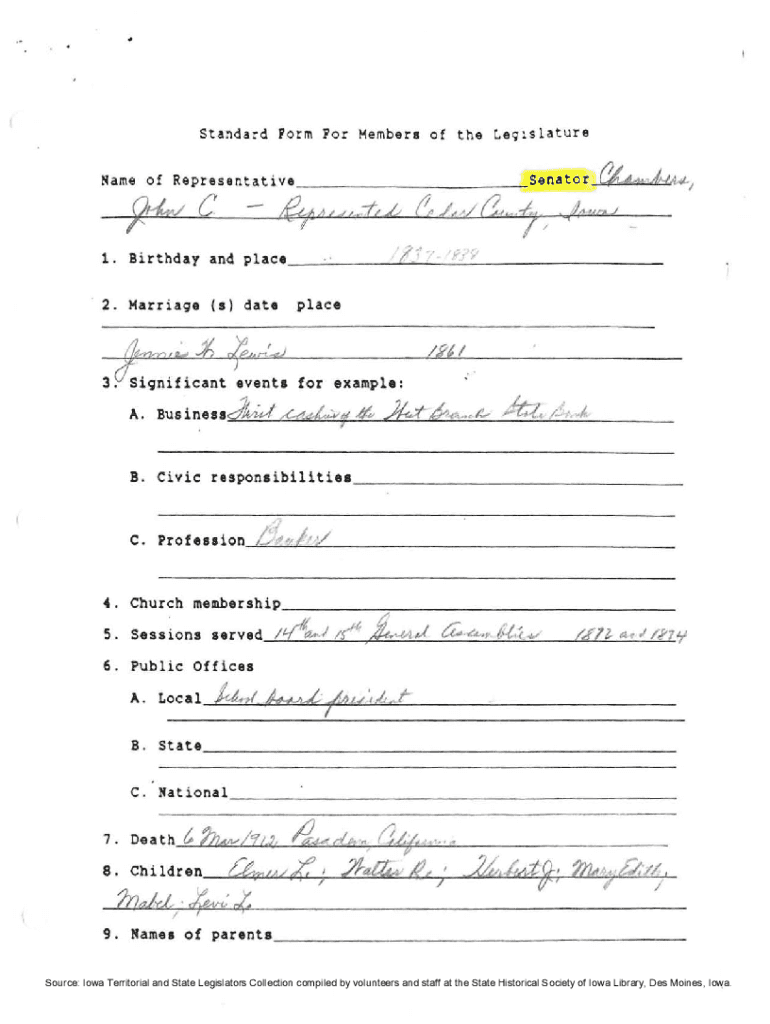 Standard Form For Members of the Legislature
Name of Representative Senator Chambers,
John C. — Represented Cedar County, Iowa
1. Birthday and place 1837-1838
2. Marriage (s) date place
Jennie H. Lewis 1861
3. Significant events for example:
A. Business First cashier of the West Branch State Bank
B. Civic responsibilities
C. Profession Banker
4. Church membership
5. Sessions served 14th and 15th General Assemblies 1872 and 1874
6. Public Offices
A. Local School board president
B. State
C. National
7. Death 6 Mar 1912 Pasadena, California
8. Children Elmer L.; Walter R.; Herbert J; Mary Edith;
Mabel; Levi L.
9. Names of parents
Source: Iowa Territorial and State Legislators Collection compiled by volunteers and staff at the State Historical Society of Iowa Library, Des Moines, Iowa.